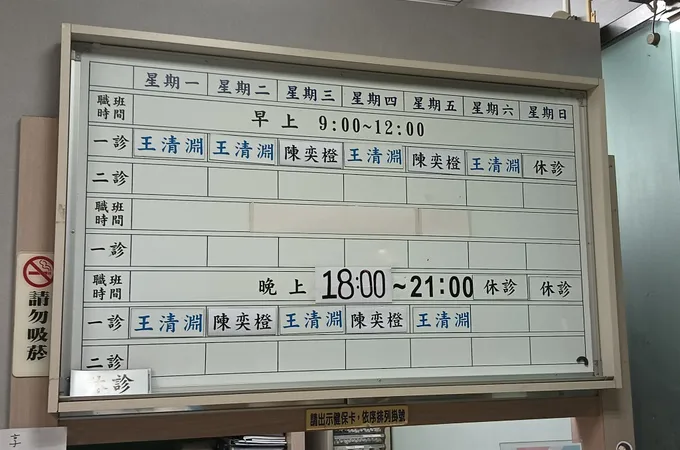 星期一 星期二 星期三 星期四 星期五 星期六 星期日
職班時間 早上 9:00~12:00
一診 王清淵 王清淵 陳奕橙 王清淵 陳奕橙 王清淵 休診
二診
職班時間
一診
職班時間 晚上 18:00~21:00 休診 休診
一診 王清淵 陳奕橙 王清淵 陳奕橙 王清淵
二診
休診
請勿吸菸
請出示健保卡,依序排列掛號
享